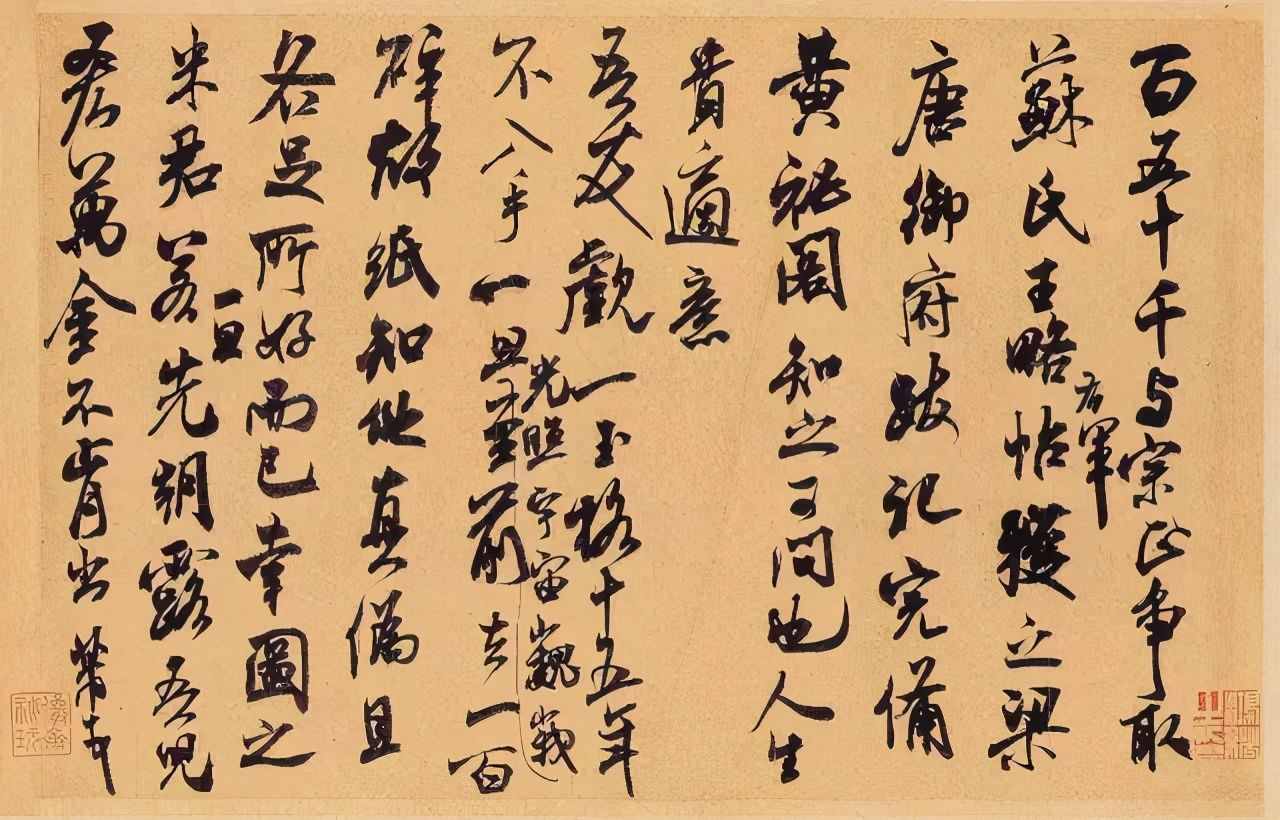 百五十千与宗正争取
蘇氏王略帖獲之梁
右軍
唐御府跋記完備
黃祕閣知之可問也人生
貴適意
吾友覷一玉格十五年
光照宇宙巍峩
不入手一旦至前去一百
碎故紙知他真偽且
各足所好而已幸圖之
一旦
米君若先朝露吾兒
吝萬金不肯出芾頓首